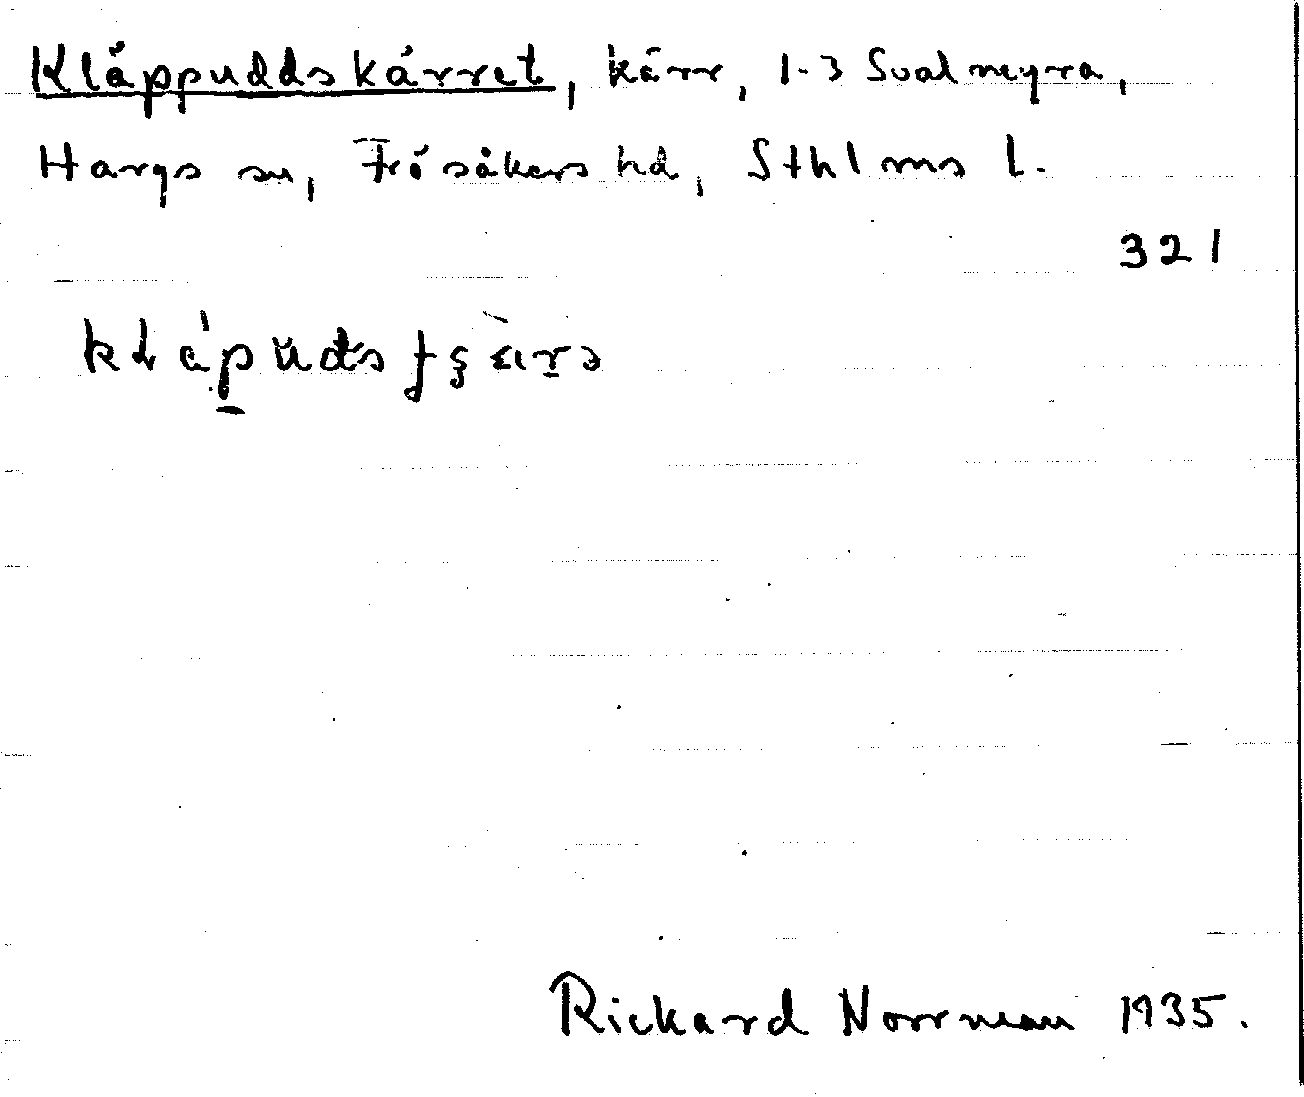 Kläppuddskärret, kärr, 1-3 Svalmeyra,
Hargs sn, Frösåkers hd, Sthlms l.
321
Rickard Norrman 1935.